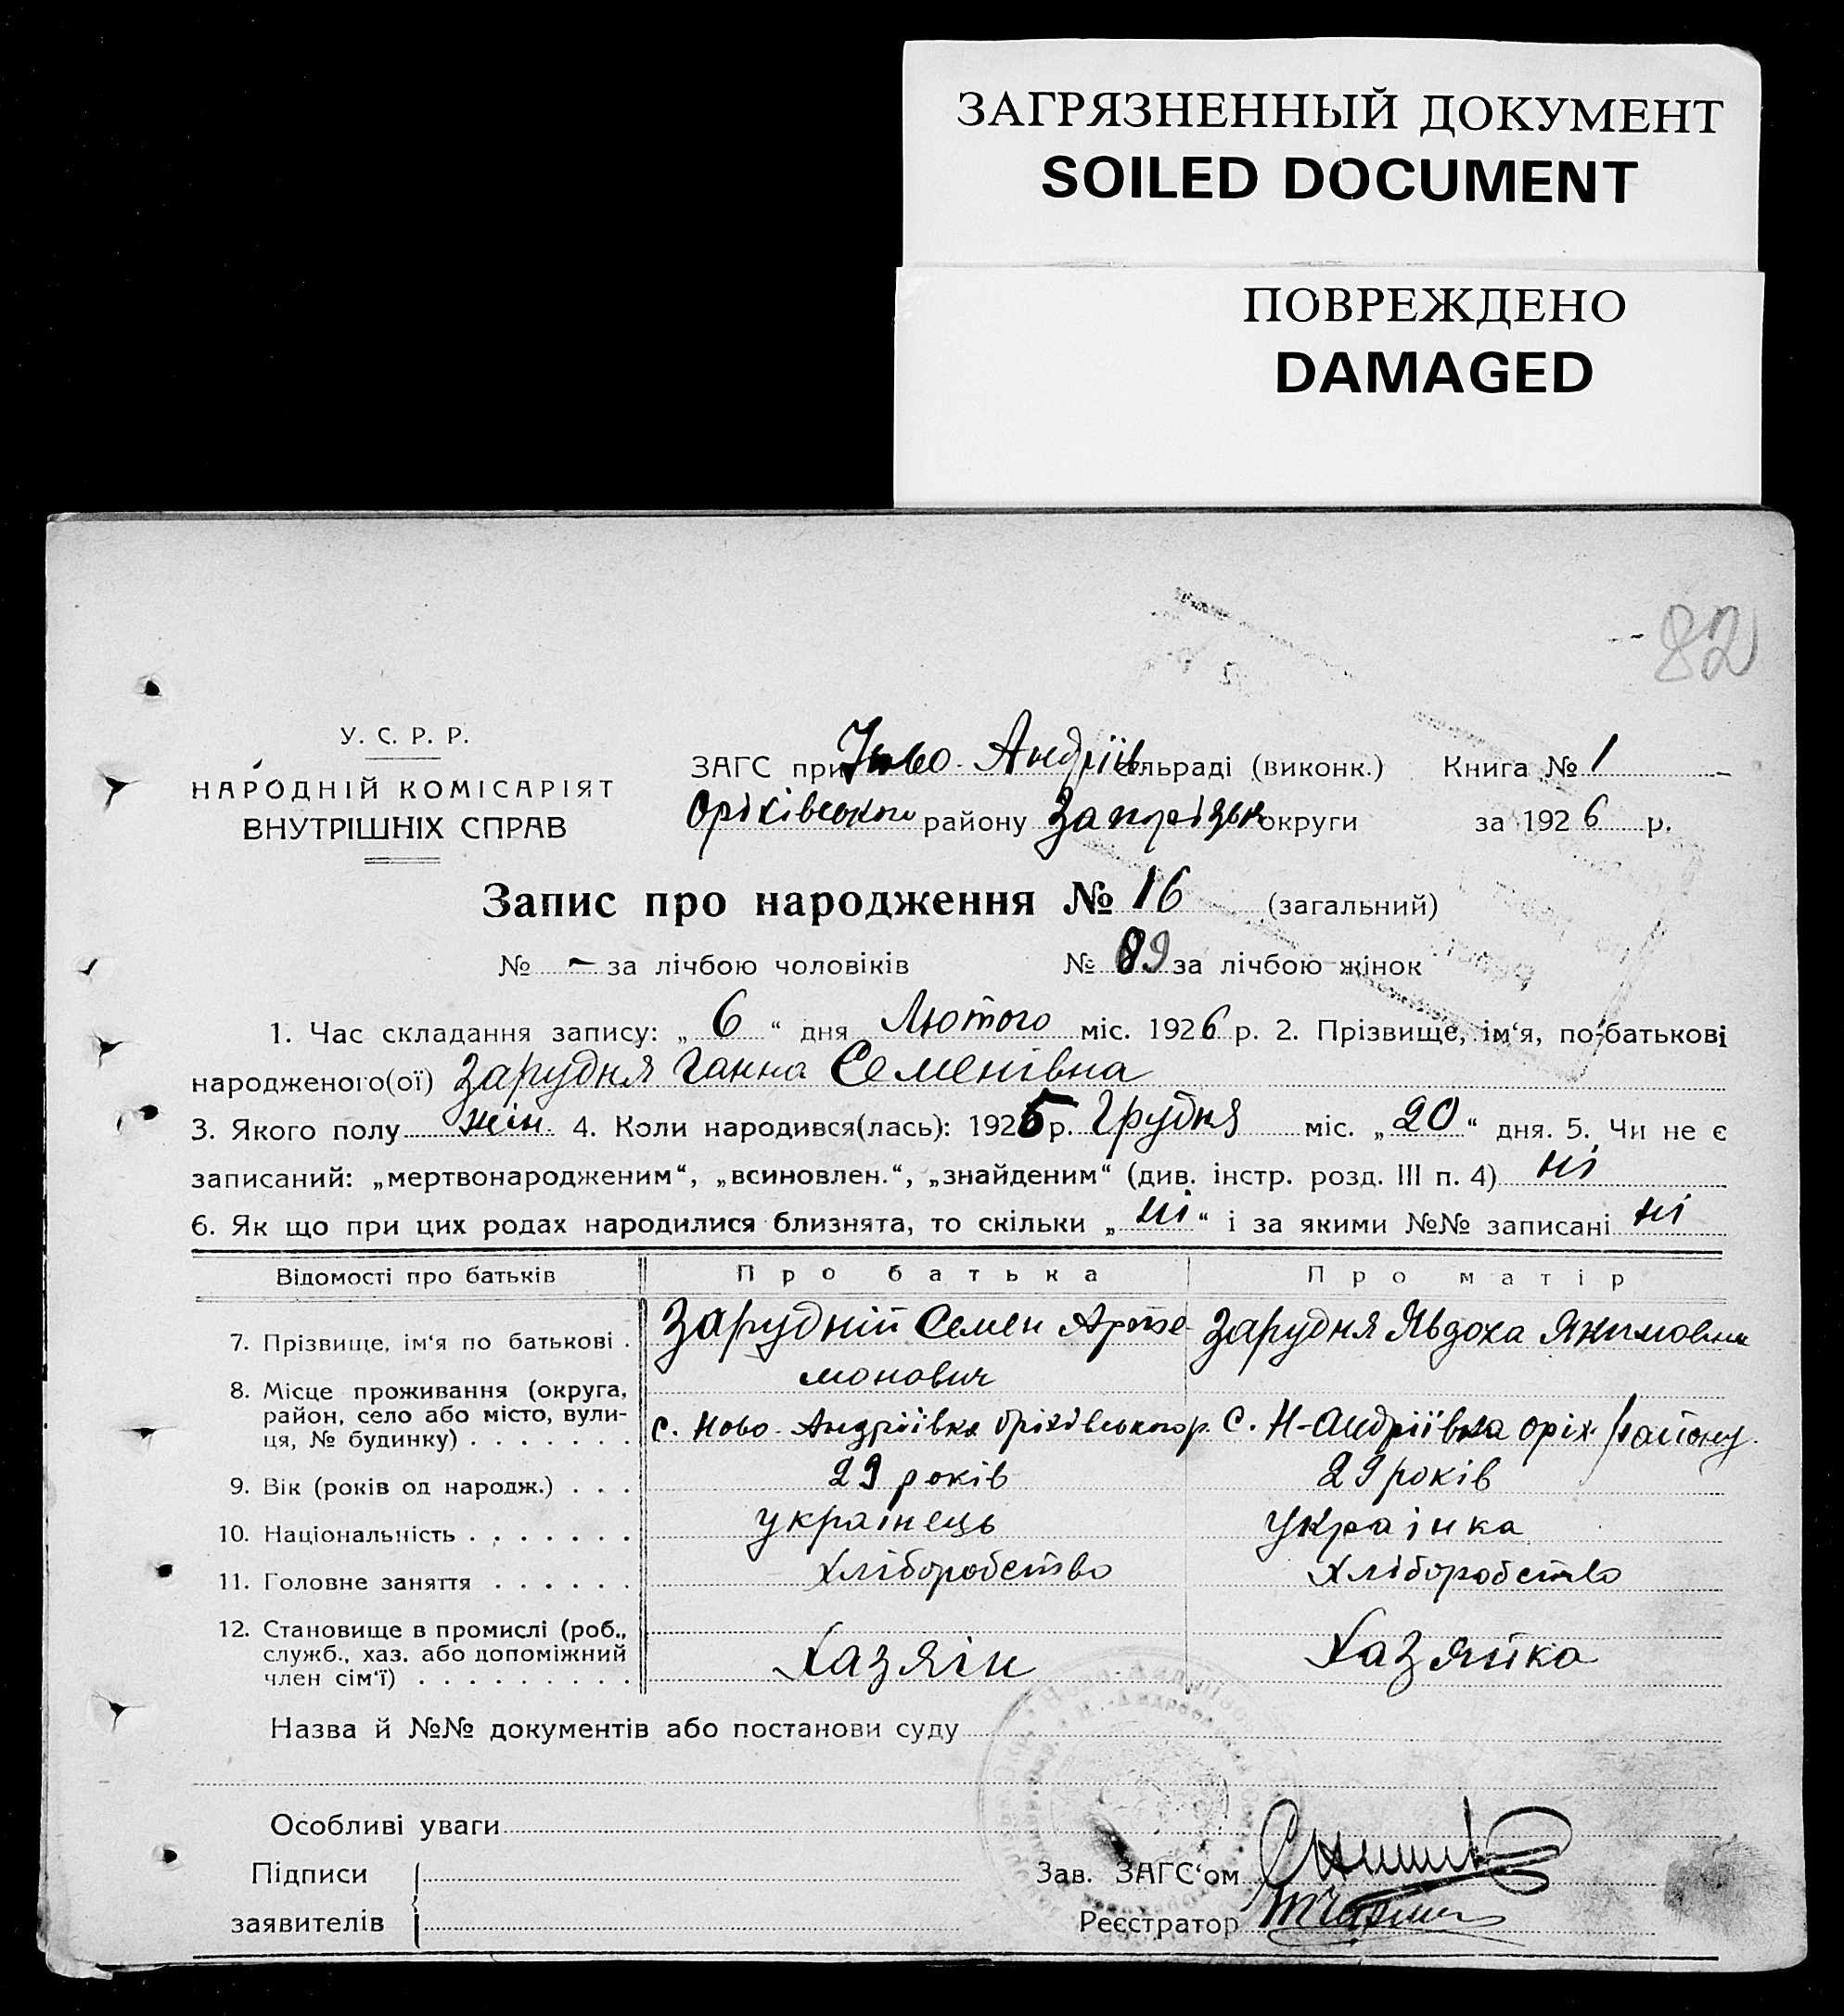 ЗАГРЯЗНЕННЫЙ ДОКУМЕНТ
SOILED DOCUMENT
ПОВРЕЖДЕНО
DAMAGED
82
У. С. Р. Р.
НАРОДНІЙ КОМІСАРІЯТ
ВНУТРІШНІХ СПРАВ
ЗАГС при Ново-Андріїв сільраді (виконк.) Книга № 1
Оріхівського району Запорізьк округи за 1926 р.
Запис про народження № 16 (загальний)
№ - за лічбою чоловіків № 89 за лічбою жінок
1. Час складання запису: „ 6 “ дня Лютого міс. 1926 р. 2. Прізвище, ім‘я, по-батькові
народженого(ої) Зарудня Ганна Семенівна
3. Якого полу жін. 4. Коли народився(лась): 1925 р. Грудня міс. „ 20 “ дня. 5. Чи не є
записаний: „мертвонародженим“, „всиновлен.“, „знайденим“ (див. інстр. розд. III п. 4) ні
6. Як що при цих родах народилися близнята, то скільки „ ні “ і за якими №№ записані ні
Відомості про батьків Про батька Про матір
7. Прізвище, ім‘я по батькові . Зарудній Семен Арте- Зарудня Явдоха Якимовна
монович
8. Місце проживання (округа,
район, село або місто, вули-
ця, № будинку) . . . . . . . с. Ново-Андріївка Оріхівського р. с. Н-Андріївка Оріх. району.
9. Вік (років од народж.) . . . 29 років 29 років
10. Національність . . . . . . . українець українка
11. Головне заняття . . . . . . хліборобство хліборобство
12. Становище в промислі (роб.,
служб., хаз. або допоміжний
член сім‘ї) . . . . . . . . . Хазяін Хазяйка
Назва й №№ документів або постанови суду
Особливі уваги
Підписи
заявителів
Зав. ЗАГС‘ом
Реєстратор